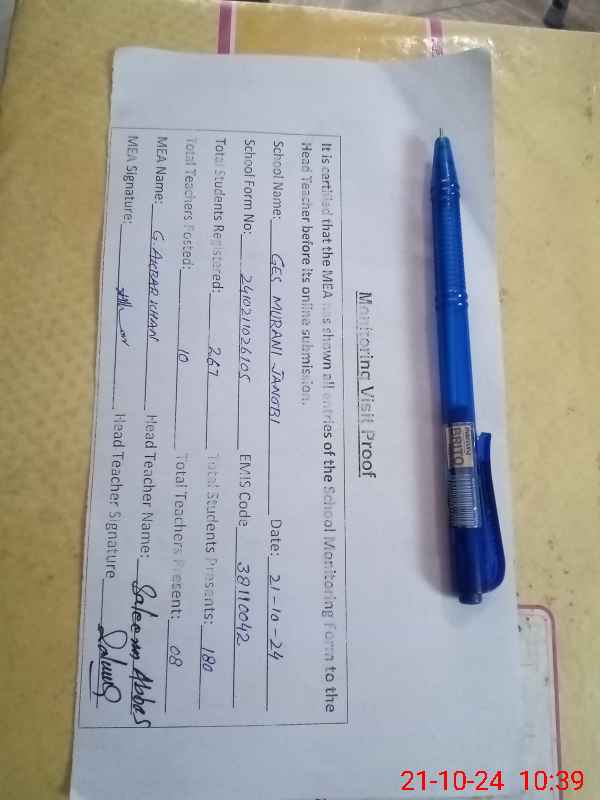 Monitoring Visit Proof
It is certified that the MEA has shown all entries of the School Monitoring Form to the
Head Teacher before its online submission.
School Name: GES MURANI JANOBI Date: 21-10-24
School Form No: 241021102610S EMIS Code 38110042
Total Students Registered: 267 Total Students Presents: 180
Total Teachers Posted: 10 Total Teachers Present: 08
MEA Name: G. AKBAR KHAN Head Teacher Name: Saleem Abbas
MEA Signature: Head Teacher Signature
BRITO
21-10-24 10:39